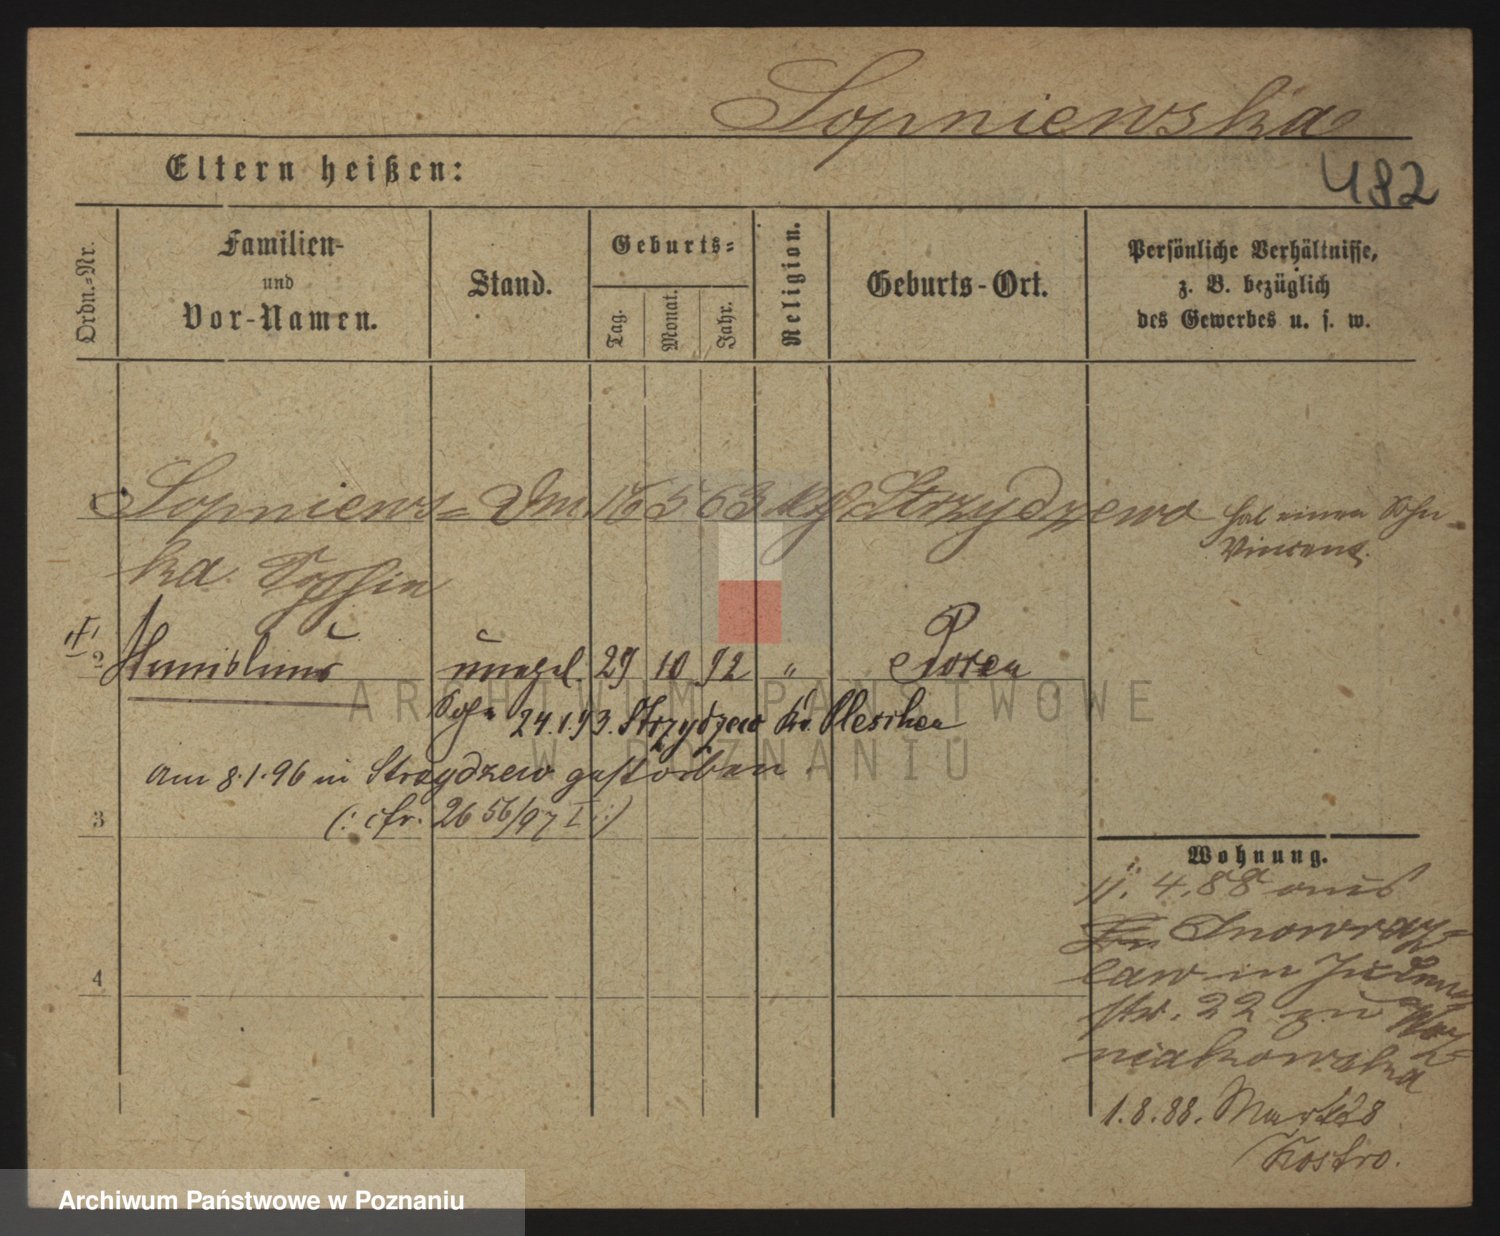 Sopniewska
Eltern heißen:
482
Ordn.-Nr.
Familien-
und
Vor-Namen.
Stand.
Geburts-
Tag.
Monat.
Jahr.
Religion.
Geburts-Ort.
Persönliche Verhältnisse,
z. B. bezüglich
des Gewerbes u. s. w.
Sopniews= 16 5 63 Strzydzewo hat einen Sohn
Vincenz.
ka Sophie
2 Stanislaus unehel. 29 10 92 " Posen
Sohn 24.1.93. Strzydzew Kr. Pleschen
am 8.1.96 in Strzydzew gestorben.
3 (: cfr. 2656/97 I :)
Wohnung.
4. 88 aus
Inowraz=
law in
4
str. 22 zu
niakowska
1.8.88. Markt 88
Kostro.
ARCHIWUM PAŃSTWOWE
W POZNANIU
Archiwum Państwowe w Poznaniu